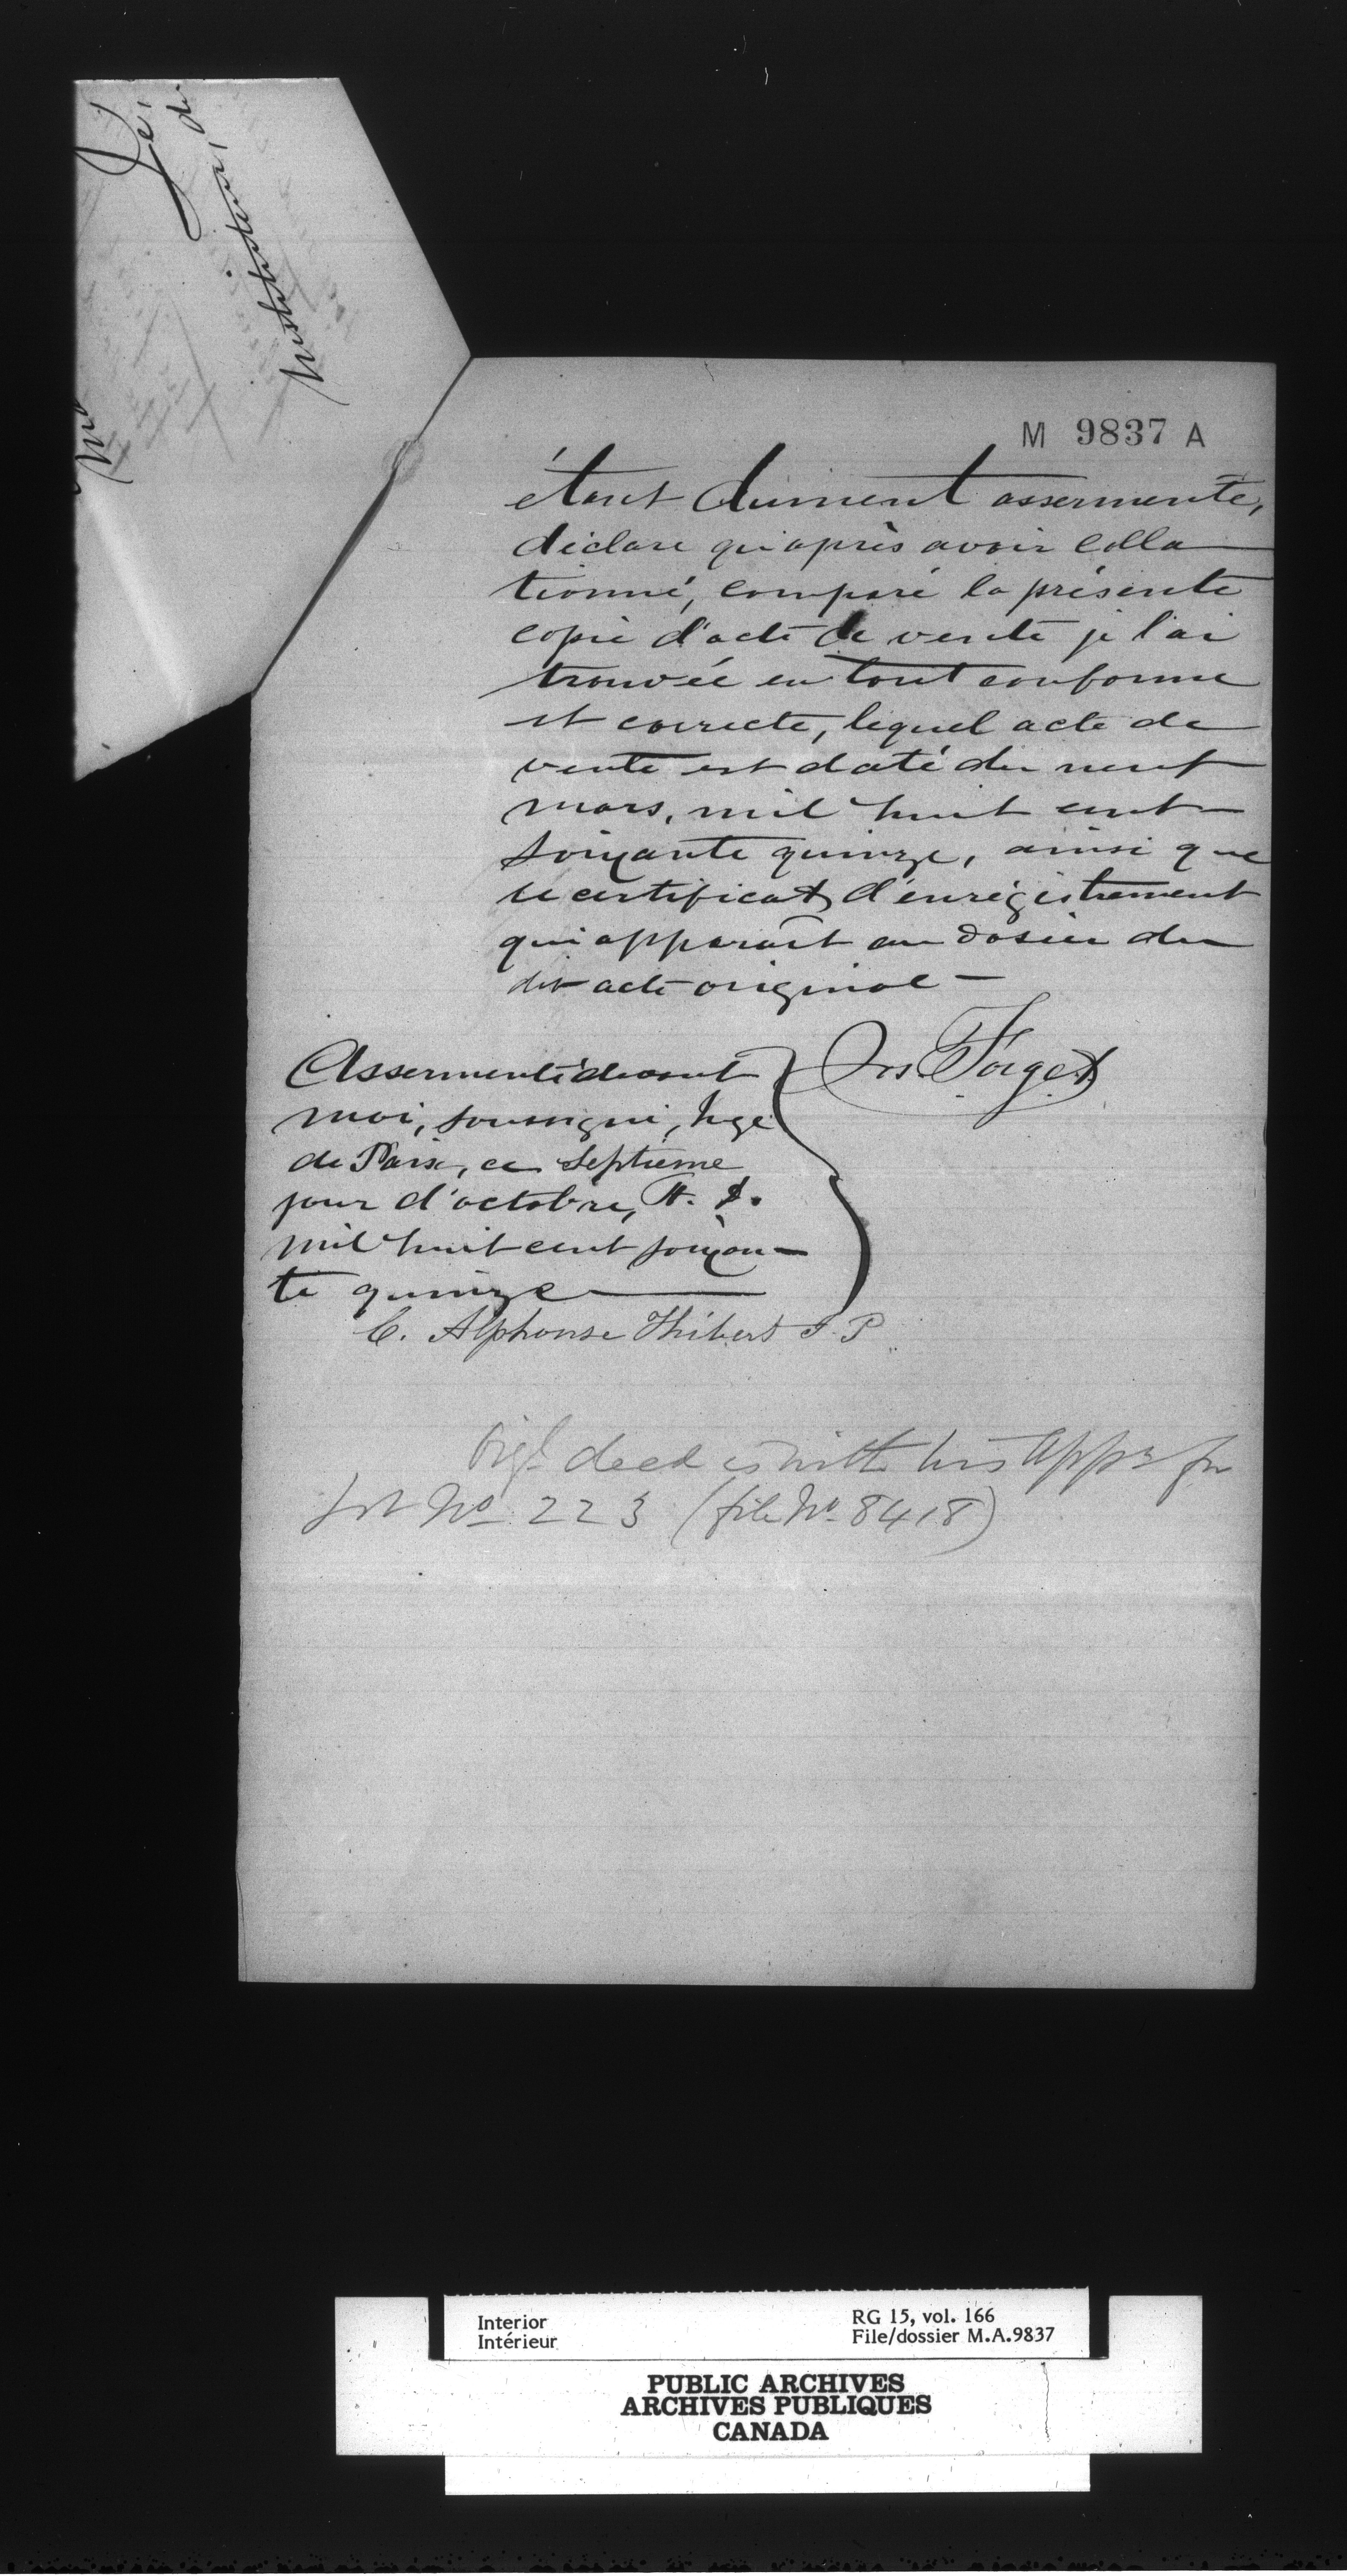 Je,
instituteur, de
M 9837 A
étant dûment assermenté,
déclare qu'après avoir colla
tionné, comparé la présente
copie d'acte de vente je l'ai
trouvée en tout conforme
et correcte, lequel acte de
vente est daté du neuf
mars, mil huit cent
soixante quinze, ainsi que
le certificat d'enrégistrement
qui apparaît au dosier du
dit acte original —
Jos. Forget
Assermenté devant
moi, soussigné, Juge
de Paix, ce septième
jour d'octobre, A. D.
mil huit cent soixan-
te quinze
C. Alphonse Thibert J. P.
Origl deed is with his appn for
Lot No 223 (file No. 8418)
Interior
Intérieur
RG 15, vol. 166
File/dossier M.A.9837
PUBLIC ARCHIVES
ARCHIVES PUBLIQUES
CANADA